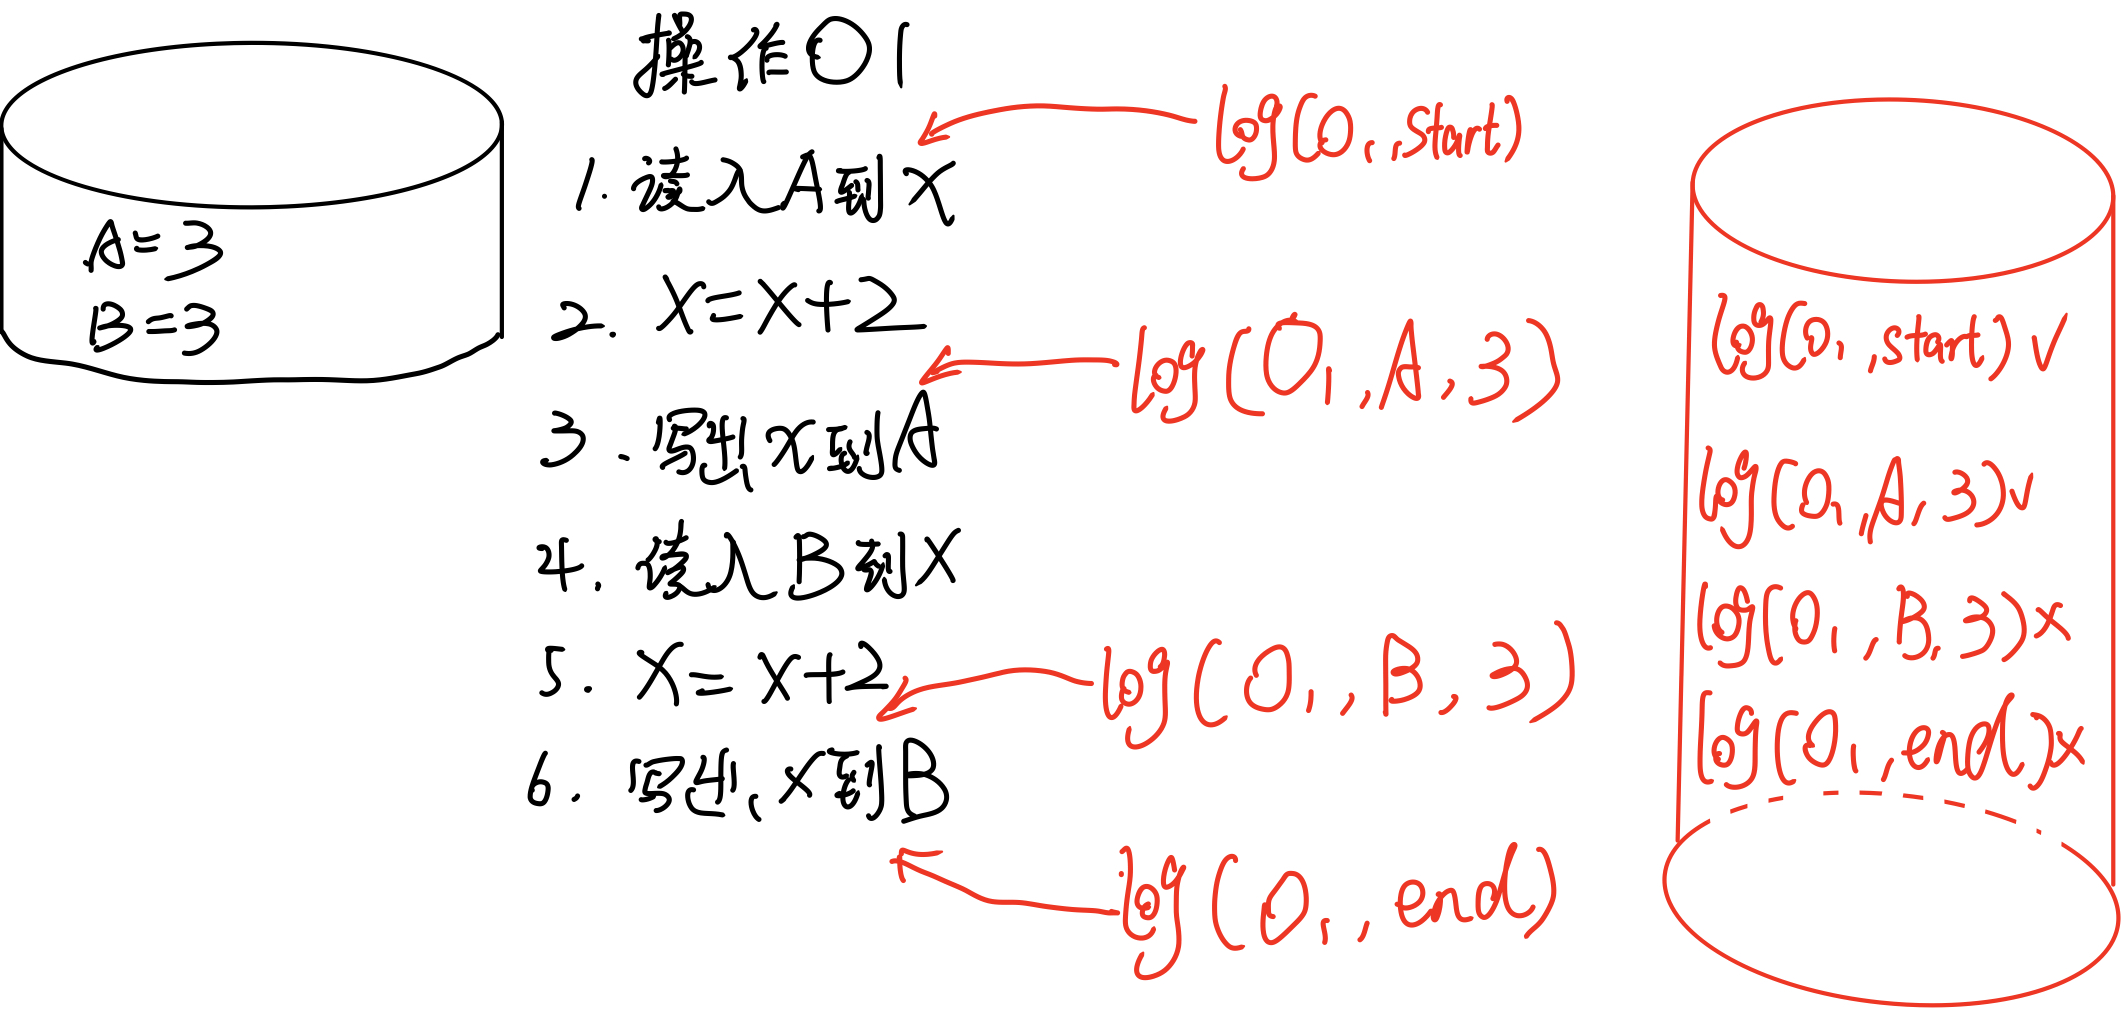 操作O1
A=3
B=3
1. 读入A到x
2. x=x+2
3. 写出x到A
4. 读入B到x
5. x=x+2
6. 写出x到B
log(O1,start)
log(O1,A,3)
log(O1,B,3)
log(O1,end)
log(O1,start)√
log(O1,A,3)√
log(O1,B,3)×
log(O1,end)×